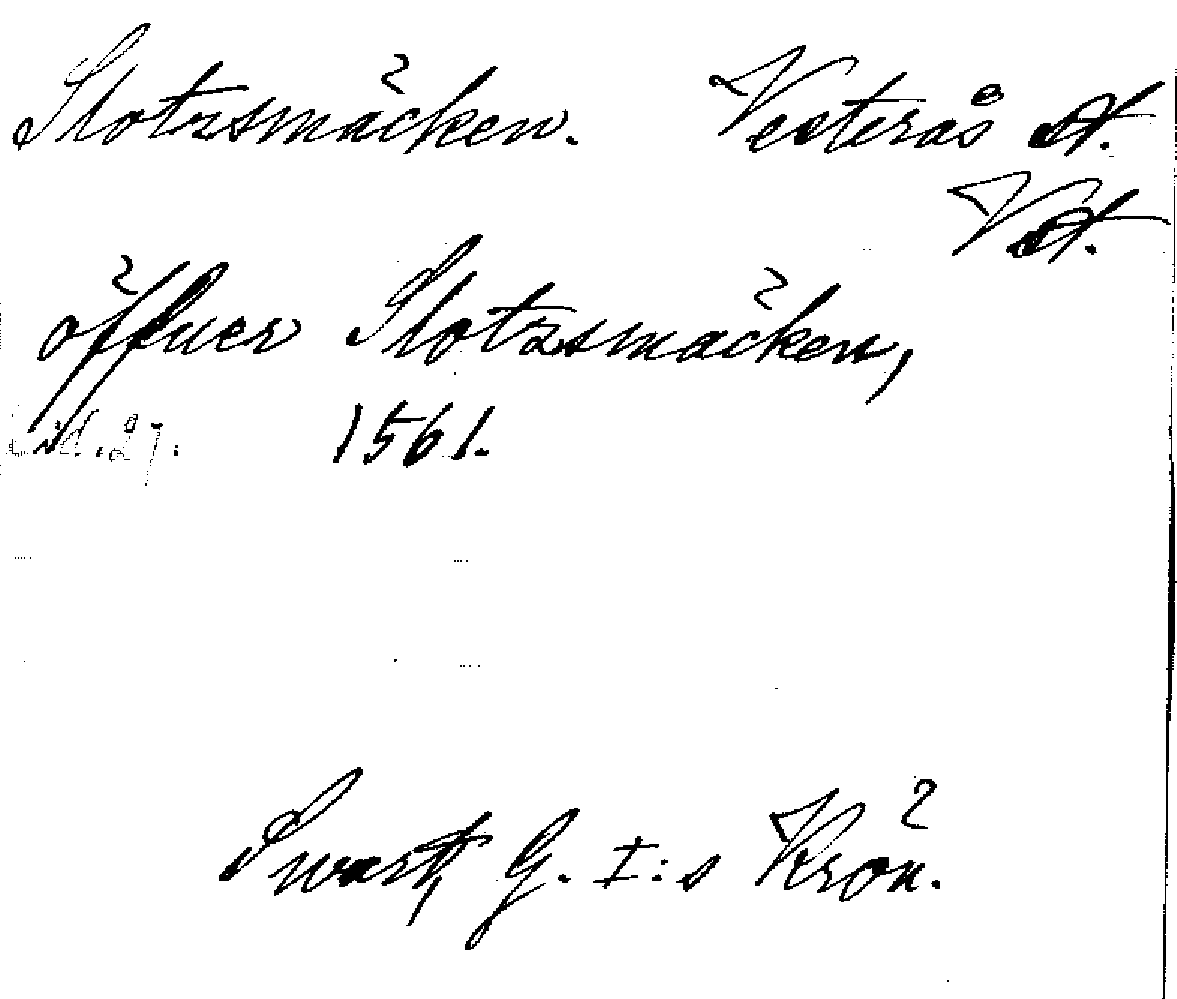 Slotzsmäcken. Vesterås st.
Vst.
öffuer Slotzsmäcken,
sid. 27. 1561.
Swart, G. I:s Krön.